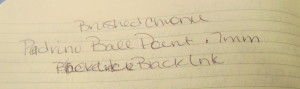 Brushed Chrome
Padrino Ball Point .7mm
Black Ink